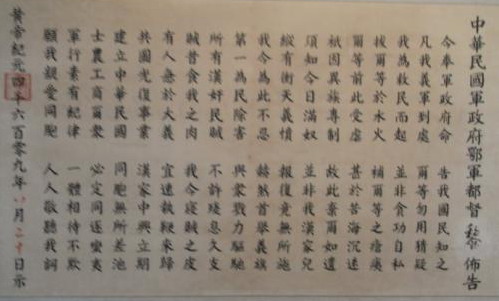 中華民國軍政府鄂軍都督黎佈告
今奉軍政府命 告我國民知之
凡我義軍到處 爾等勿用猜疑
我為救民而起 並非貪功自私
拔爾等於水火 補爾等之瘡痍
爾等前此受虐 甚於苦海沉迷
祇因異族專制 故此棄爾如遺
須知今日滿奴 並非我漢家兒
縱有衝天義憤 報復竟無所施
我今為此不忍 赫然首舉義旗
第一為民除害 與眾戮力驅馳
所有漢奸民賊 不許殘息久支
賊昔食我之肉 我今寢賊之皮
有人急於大義 宜速執鞭來歸
共圖光復事業 漢家中興立期
建立中華民國 同胞無所差池
士農工商爾眾 必定同逐蠻夷
軍行素有紀律 一體相待不欺
願我親愛同胞 人人敬聽我詞
黃帝紀元四千六百零九年八月二十日示